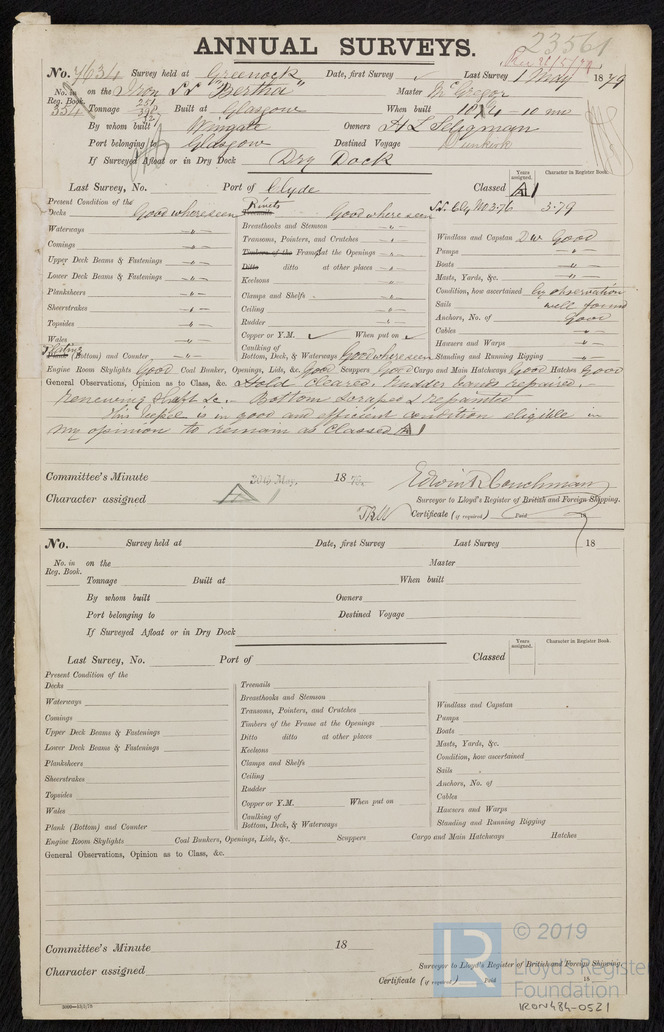 ANNUAL SURVEYS.
23561
No. 7634 Survey held at Greenock Date, first Survey ✓ Last Survey 1 May 1879
No. in Reg. Book. 354 on the Iron S.S. "Bertha" Master McGregor
Tonnage Built at Glasgow When built
By whom built Wingate Owners H L Seligman
Port belonging to Glasgow Destined Voyage Dunkirk
If Surveyed Afloat or in Dry Dock Dry Dock
Last Survey, No. Port of Clyde Classed A1
Years assigned. Character in Register Book.
S.S. Cly No 3.76 3.79
Present Condition of the
Decks Good where seen
Waterways - " -
Comings - " -
Upper Deck Beams & Fastenings - " -
Lower Deck Beams & Fastenings - " -
Planksheers - " -
Sheerstrakes - " -
Topsides - " -
Wales - " -
Plating (Bottom) and Counter - " -
Rivets Good where seen
Breasthooks and Stemson - " -
Transoms, Pointers, and Crutches - " -
Timbers of the Frame at the Openings - " -
Ditto ditto at other places - " -
Keelsons - " -
Clamps and Shelfs - " -
Ceiling - " -
Rudder - " -
Copper or Y.M. ✓ When put on ✓
Caulking of
Bottom, Deck, & Waterways Good where seen
Windlass and Capstan Good
Pumps - " -
Boats - " -
Masts, Yards, &c. - " -
Condition, how ascertained by observation
Sails well found
Anchors, No. of Good
Cables - " -
Hawsers and Warps - " -
Standing and Running Rigging - " -
Engine Room Skylights Good Coal Bunker, Openings, Lids, &c. Good Scuppers Good Cargo and Main Hatchways Good Hatches Good
General Observations, Opinion as to Class, &c. Hold cleared. Rudder bands repaired. -
renewing shaft &c. - Bottom scraped & repainted
This vessel is in good and efficient condition eligible in
my opinion to remain as Classed A1
Committee's Minute 20th May 1879
Character assigned A 1
Edwin R Couchman
Surveyor to Lloyd's Register of British and Foreign Shipping.
Certificate (if required) Paid 18
No. Survey held at Date, first Survey Last Survey 18
No. in Reg. Book. on the Master
Tonnage Built at When built
By whom built Owners
Port belonging to Destined Voyage
If Surveyed Afloat or in Dry Dock
Years assigned. Character in Register Book.
Last Survey, No. Port of Classed
Present Condition of the
Decks
Waterways
Comings
Upper Deck Beams & Fastenings
Lower Deck Beams & Fastenings
Planksheers
Sheerstrakes
Topsides
Wales
Plank (Bottom) and Counter
Treenails
Breasthooks and Stemson
Transoms, Pointers, and Crutches
Timbers of the Frame at the Openings
Ditto ditto at other places
Keelsons
Clamps and Shelfs
Ceiling
Rudder
Copper or Y.M. When put on
Caulking of
Bottom, Deck, & Waterways
Windlass and Capstan
Pumps
Boats
Masts, Yards, &c.
Condition, how ascertained
Sails
Anchors, No. of
Cables
Hawsers and Warps
Standing and Running Rigging
Engine Room Skylights Coal Bunkers, Openings, Lids, &c. Scuppers Cargo and Main Hatchways Hatches
General Observations, Opinion as to Class, &c.
Committee's Minute 18
Character assigned
Surveyor to Lloyd's Register of British and Foreign Shipping.
Certificate (if required) Paid 18
LR © 2019
Lloyd's Register
Foundation
IRON484-0521